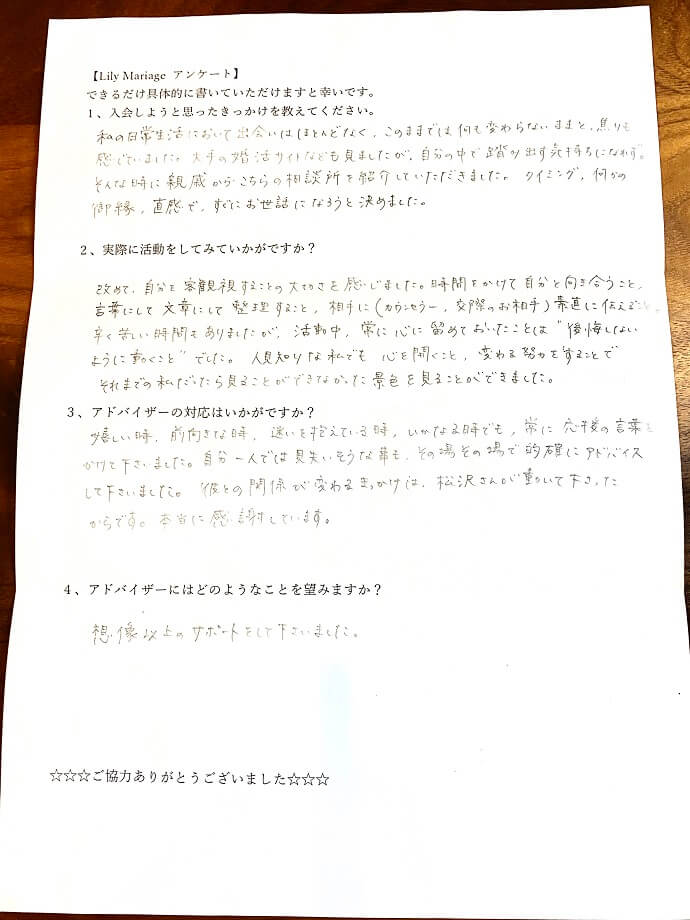 【Lily Mariage アンケート】
できるだけ具体的に書いていただけますと幸いです。
1、入会しようと思ったきっかけを教えてください。
私の日常生活において出会いはほとんどなく、このままでは何も変わらないままと、焦りも
感じていました。大手の婚活サイトなども見ましたが、自分の中で踏み出す気持ちになれず。
そんな時に親戚からこちらの相談所を紹介していただきました。タイミング、何かの
御縁、直感で、すぐにお世話になろうと決めました。
2、実際に活動をしてみていかがですか？
改めて、自分を客観視することの大切さを感じました。時間をかけて自分と向き合うこと、
言葉にして文章にして整理すること、相手に(カウンセラー、交際のお相手)素直に伝えること。
辛く苦しい時間もありましたが、活動中、常に心に留めておいたことは“後悔しない
ように動くこと”でした。人見知りな私でも心を開くこと、変わる努力をすることで
それまでの私だったら見ることができなかった景色を見ることができました。
3、アドバイザーの対応はいかがですか？
嬉しい時、前向きな時、迷いを抱えている時、いかなる時でも、常に応援の言葉を
かけて下さいました。自分一人では見失いそうな事も、その場その場で的確にアドバイス
して下さいました。彼との関係が変わるきっかけは、松沢さんが動いて下さった
からです。本当に感謝しています。
4、アドバイザーにはどのようなことを望みますか？
想像以上のサポートをして下さいました。
☆☆☆ご協力ありがとうございました☆☆☆